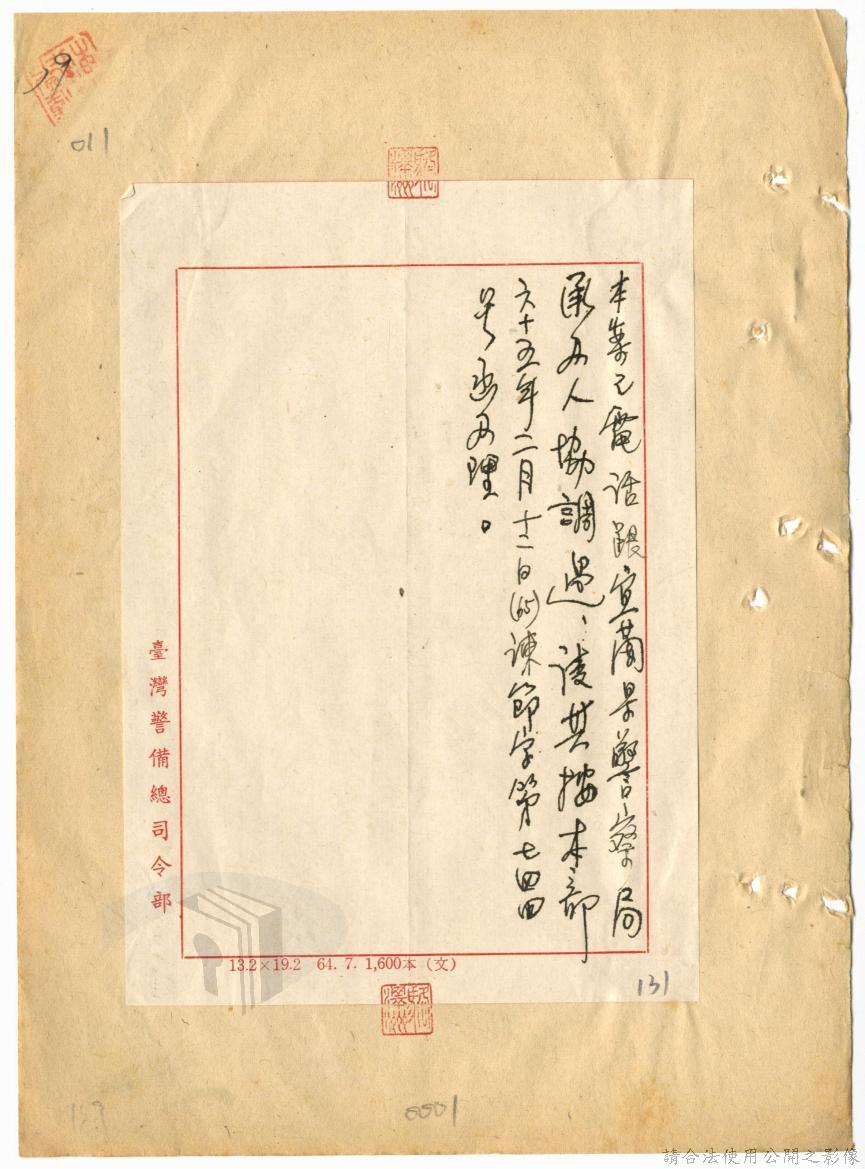 19
011
本案已電話跟宜蘭縣警察局
承办人協調過、請其按本部
六十五年二月十二日(65)諫節字第七四四
号函办理。
臺灣警備總司令部
13.2×19.2 64.7. 1,600本(文)
131
139
0001
請合法使用公開之影像